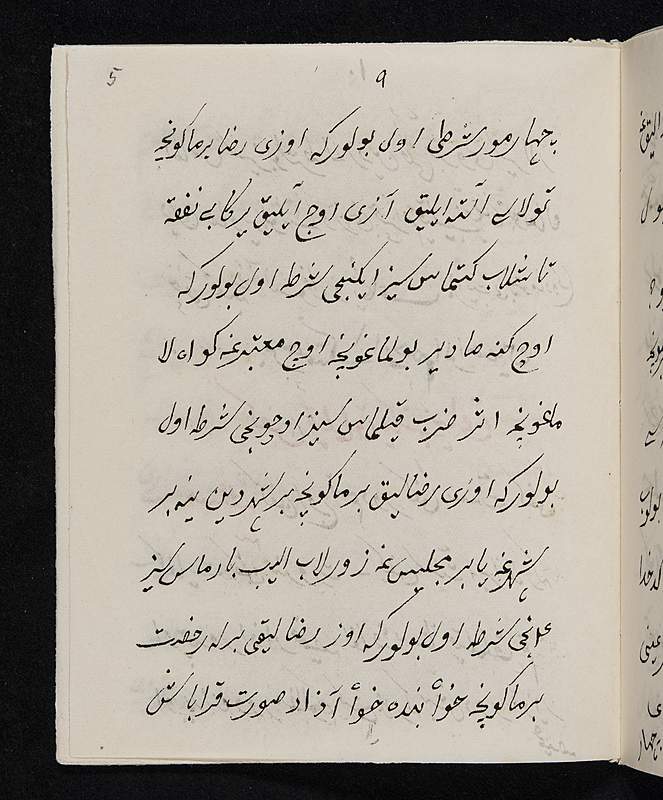 5 ٩
بچهار مور شرطی اول بولور که اوزی رضا بیرماکونچه
تولا لے آلته ایلیق آزی اوچ آیلیق یرکا بے نفقه
تاشلاب کتماس سیز ایکنجی شرطه اول بولور که
اوچ کنه صادیر بولماغونچه اوچ معتبرغه کواه لا
ماغونچه اثر ضرب قیلماس سیز اوچونجی شرطه اول
بولور که اوزی رضالیق بیرماکونچه بر شهردین ینه بر
شهرغه یا بر مجلیس غه زورلاب الیب بارماس سیز
۴نجی شرطه اول بولور که اوز رضالیقی برله رخصت
بیرماکونچه خواه بنده خواه آذاد صورت قراباش